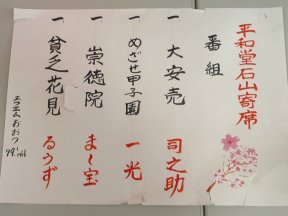 平和堂石山寄席
番組
一 大安売 司之助
一 めざせ甲子園 一光
一 崇徳院 まん宝
一 貧乏花見 るうず
エフエムおおつ